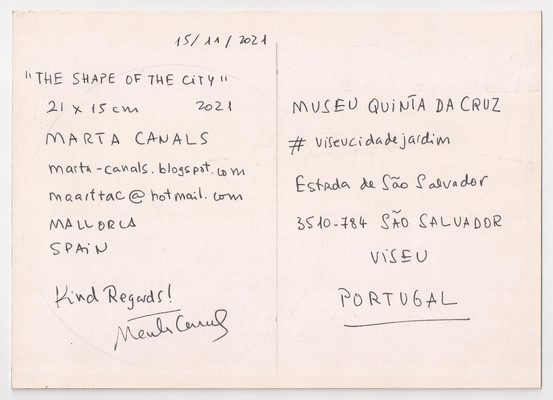 15/11/2021
"THE SHAPE OF THE CITY"
21 x 15 cm 2021
MARTA CANALS
marta-canals.blogspot.com
maarttac@hotmail.com
MALLORCA
SPAIN
Kind Regards!
Marta Canals
MUSEU QUINTA DA CRUZ
# viseucidadejardim
Estrada de São Salvador
3510-784 SÃO SALVADOR
VISEU
PORTUGAL